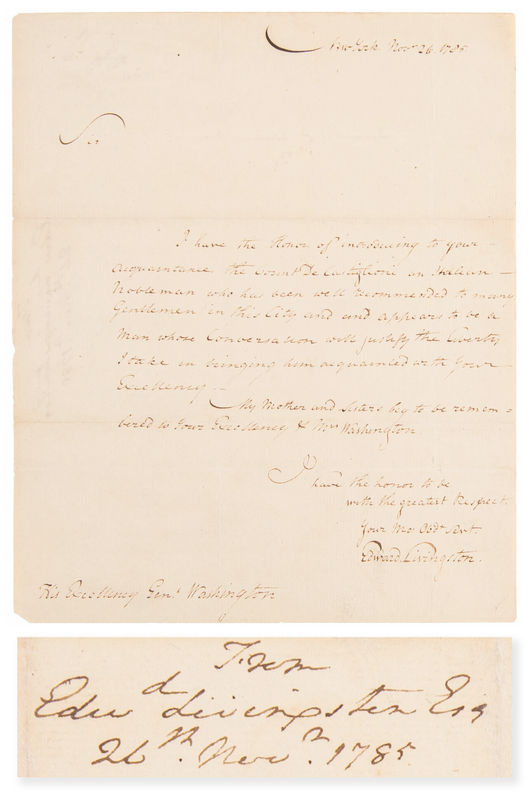 New York Novr 26. 1785
Sir
I have the Honor of introducing to your
acquaintance the Count De Castiglioni an Italian
Nobleman who has been well recommended to many
Gentlemen in this City and and appears to be a
Man whose Conversation will justify the liberty
I take in bringing him acquainted with Your
Excellency
My Mother and Sisters beg to be remem=
bered to Your Excellency & Mrs Washington
I have the honor to be
with the greatest Respect.
Your Mo. Obdt Servt.
Edward Livingston.
His Excellency Genl Washington
From
Edwd Livingston Esq
26th Novr 1785